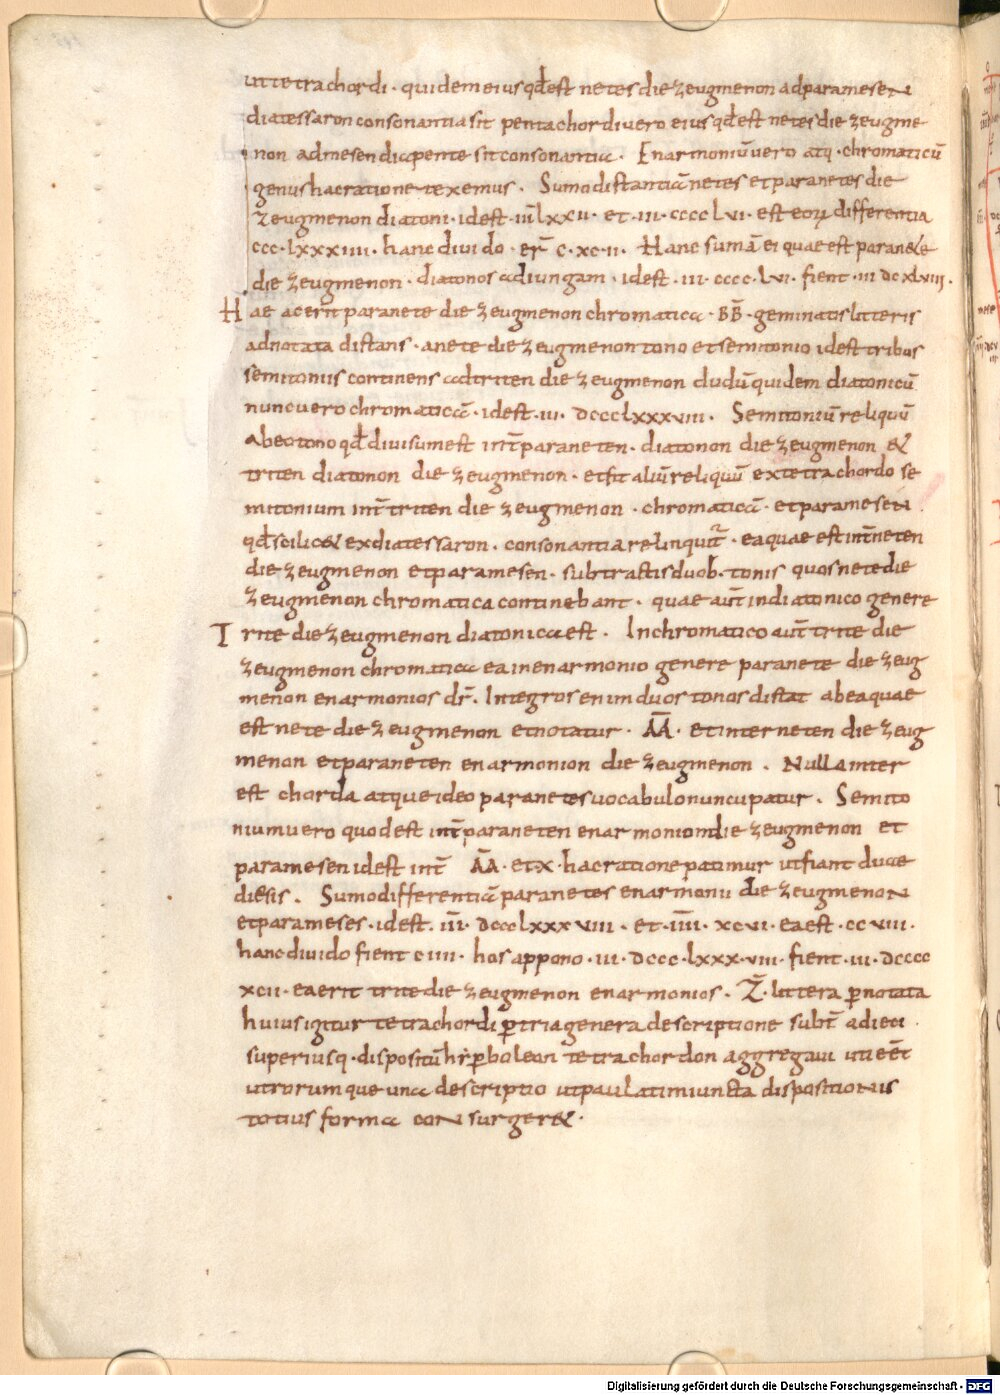 ut tetrachordi · quidem eius qđ est netes die zeugmenon ad paramesen
diatessaron consonantia sit pentachordi vero eius qđ est netes die zeugme
non ad mesen diapente sit consonantia . Enarmoniū vero atq · chromaticū
genus hac ratione texemus . Sumo distantiā netes et paranetes die
zeugmenon diatoni · id est · iii̅ lxxii · et · iii · cccc lvi · est eorꝝ differentia
ccc · lxxxiiii · hanc divido · er̄ · c · xc · ii · Hanc sumā ei quae est paranete
die zeugmenon · diatonos adiungam · id est · iii · cccc · lvi · fient · iii dc xlviii ·
Hae ac erit paranete die zeugmenon chromatica · B̅B̅ · geminatis litteris
adnotata distans · a nete die zeugmenon tono et semitonio id est tribus
semitoniis continens ad triten die zeugmenon dudū quidem diatonicū
nunc vero chromaticā · id est · iii · dccc lxxxviii · Semitoniū reliquū
ab eo tono qđ divisum est int̄ paraneten · diatonon die zeugmenon &
triten diatonon die zeugmenon · et fit aliū reliquū ex tetrachordo se
mitonium int̄ triten die zeugmenon · chromaticā · et paramesen
qđ scilic& ex diatessaron · consonantia relinquit̄ · ea quae est int̄ neten
die zeugmenon et paramesen · subtractis duob · tonis quos nete die
zeugmenon chromatica continebant · quae aūt in diatonico genere
Trite die zeugmenon diatonica est · In chromatico aūt trite die
zeugmenon chromatica ea in enarmonio genere paranete die zeug
menon enarmonios dr̄ · Integros enim duos tonos distat ab ea quae
est nete die zeugmenon et notatur · A̅A̅ · et inter neten die zeug
menon et paraneten enarmonion die zeugmenon · Nulla inter
est chorda atque ideo paranetes vocabulo nuncupatur · Semito
nium vero quod est int̄ paraneten enarmoniondie zeugmenon et
paramesen id est int̄ A̅A̅ · et x · hac ratione patimur ut fiant duae
diesis . Sumo differentiā paranetes enarmonii die zeugmenon
et parameses · id est · iii̅ · dccc lxxxviii · et · iiii̅ · xcvi · ea est · cc viii ·
hanc divido fient c iiii · hos appono · iii · dccc · lxxx · viii · fient · iii · dcccc
xcii · ea erit trite die zeugmenon enarmonios · Z̅ · littera ꝑnotata
huius igitur tetrachordi ꝑ tria genera descriptione subt̄ adieci ·
superiusq · dispositū hyꝑboleon tetrachordon aggregavi uti eēt
utrorumque una descriptio ut paulatim iuncta dispositionis
totius forma consurger& ·
Digitalisierung gefördert durch die Deutsche Forschungsgemeinschaft - DFG